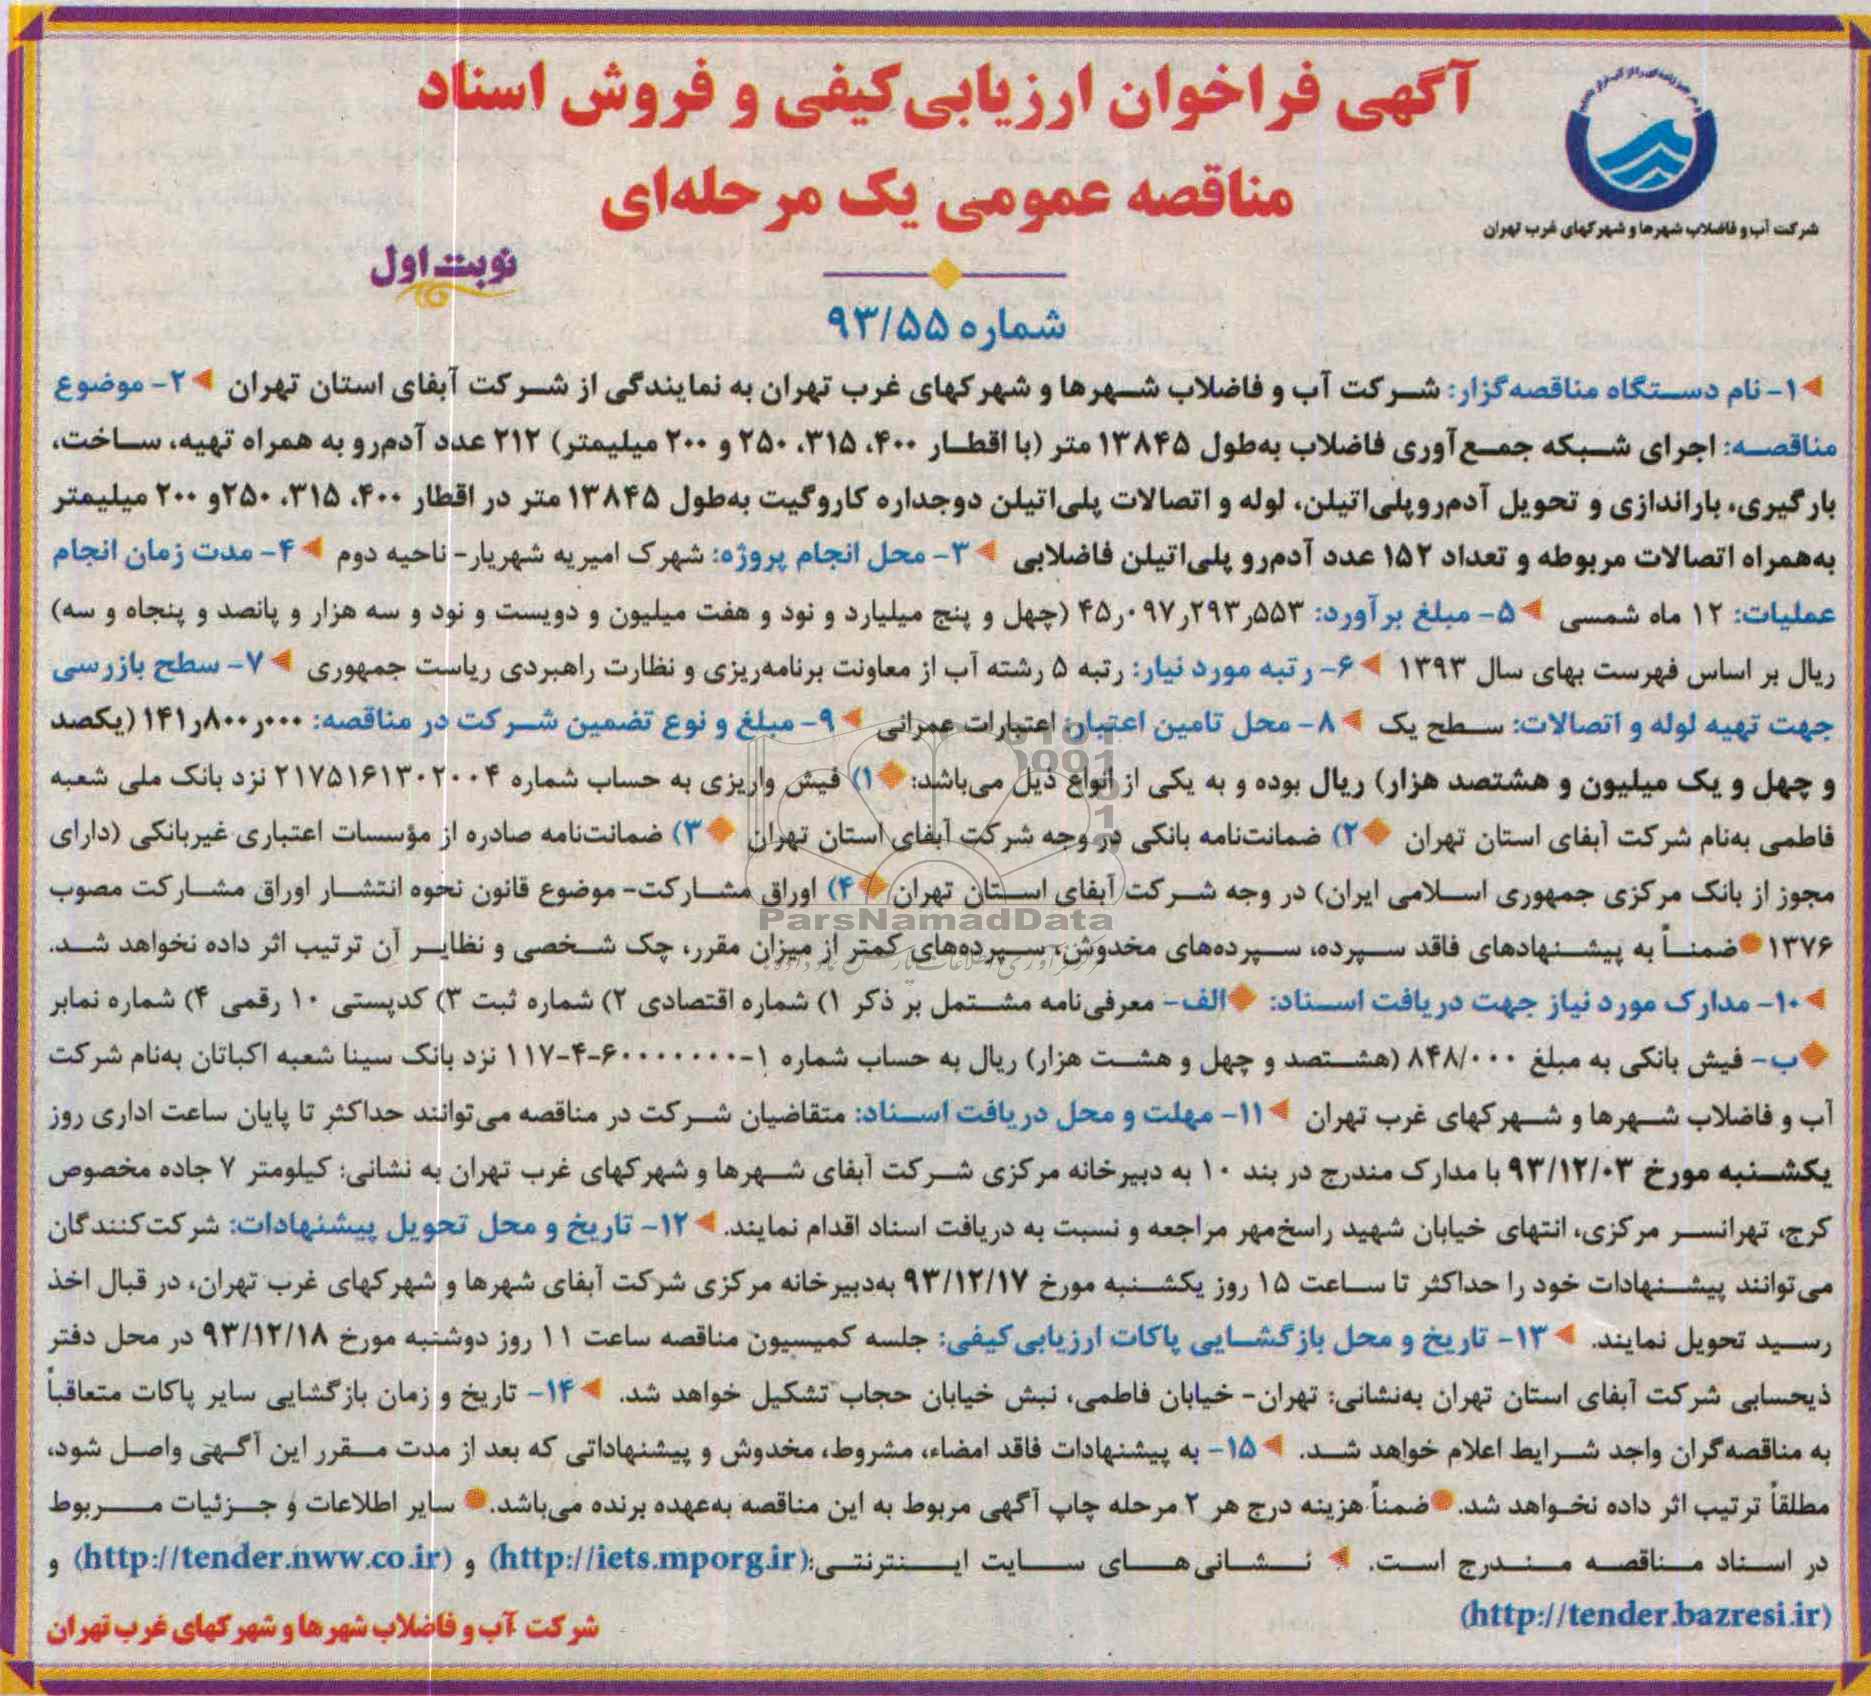 آگهی فراخوان ارزیابی کیفی و فروش اسناد
مناقصه عمومی یک مرحله‌ای
شرکت آب و فاضلاب شهرها و شهرکهای غرب تهران
نوبت اول
شماره ۹۳/۵۵
۱- نام دستگاه مناقصه‌گزار: شرکت آب و فاضلاب شهرها و شهرکهای غرب تهران به نمایندگی از شرکت آبفای استان تهران ۲- موضوع
مناقصه: اجرای شبکه جمع‌آوری فاضلاب به‌طول ۱۳۸۴۵ متر (با اقطار ۴۰۰، ۳۱۵، ۲۵۰ و ۲۰۰ میلیمتر) ۲۱۲ عدد آدم‌رو به همراه تهیه، ساخت،
بارگیری، باراندازی و تحویل آدم‌روپلی‌اتیلن، لوله و اتصالات پلی‌اتیلن دوجداره کاروگیت به‌طول ۱۳۸۴۵ متر در اقطار ۴۰۰، ۳۱۵، ۲۵۰و ۲۰۰ میلیمتر
به‌همراه اتصالات مربوطه و تعداد ۱۵۲ عدد آدم‌رو پلی‌اتیلن فاضلابی ۳- محل انجام پروژه: شهرک امیریه شهریار- ناحیه دوم ۴- مدت زمان انجام
عملیات: ۱۲ ماه شمسی ۵- مبلغ برآورد: ۴۵٫۰۹۷٫۲۹۳٫۵۵۳ (چهل و پنج میلیارد و نود و هفت میلیون و دویست و نود و سه هزار و پانصد و پنجاه و سه)
ریال بر اساس فهرست بهای سال ۱۳۹۳ ۶- رتبه مورد نیاز: رتبه ۵ رشته آب از معاونت برنامه‌ریزی و نظارت راهبردی ریاست جمهوری ۷- سطح بازرسی
جهت تهیه لوله و اتصالات: سطح یک ۸- محل تامین اعتبار: اعتبارات عمرانی ۹- مبلغ و نوع تضمین شرکت در مناقصه: ۱۴۱٫۸۰۰٫۰۰۰ (یکصد
و چهل و یک میلیون و هشتصد هزار) ریال بوده و به یکی از انواع ذیل می‌باشد: ۱) فیش واریزی به حساب شماره ۲۱۷۵۱۶۱۳۰۲۰۰۴ نزد بانک ملی شعبه
فاطمی به‌نام شرکت آبفای استان تهران ۲) ضمانت‌نامه بانکی در وجه شرکت آبفای استان تهران ۳) ضمانت‌نامه صادره از مؤسسات اعتباری غیربانکی (دارای
مجوز از بانک مرکزی جمهوری اسلامی ایران) در وجه شرکت آبفای استان تهران ۴) اوراق مشارکت- موضوع قانون نحوه انتشار اوراق مشارکت مصوب
ParsNamadData
۱۳۷۶ ضمناً به پیشنهادهای فاقد سپرده، سپرده‌های مخدوش، سپرده‌های کمتر از میزان مقرر، چک شخصی و نظایر آن ترتیب اثر داده نخواهد شد.
۱۰- مدارک مورد نیاز جهت دریافت اسناد: الف- معرفی‌نامه مشتمل بر ذکر ۱) شماره اقتصادی ۲) شماره ثبت ۳) کدپستی ۱۰ رقمی ۴) شماره نمابر
ب- فیش بانکی به مبلغ ۸۴۸/۰۰۰ (هشتصد و چهل و هشت هزار) ریال به حساب شماره ۱-۶۰۰۰۰۰۰۰-۴-۱۱۷ نزد بانک سینا شعبه اکباتان به‌نام شرکت
آب و فاضلاب شهرها و شهرکهای غرب تهران ۱۱- مهلت و محل دریافت اسناد: متقاضیان شرکت در مناقصه می‌توانند حداکثر تا پایان ساعت اداری روز
یکشنبه مورخ ۹۳/۱۲/۰۳ با مدارک مندرج در بند ۱۰ به دبیرخانه مرکزی شرکت آبفای شهرها و شهرکهای غرب تهران به نشانی: کیلومتر ۷ جاده مخصوص
کرج، تهرانسر مرکزی، انتهای خیابان شهید راسخ‌مهر مراجعه و نسبت به دریافت اسناد اقدام نمایند. ۱۲- تاریخ و محل تحویل پیشنهادات: شرکت‌کنندگان
می‌توانند پیشنهادات خود را حداکثر تا ساعت ۱۵ روز یکشنبه مورخ ۹۳/۱۲/۱۷ به‌دبیرخانه مرکزی شرکت آبفای شهرها و شهرکهای غرب تهران، در قبال اخذ
رسید تحویل نمایند. ۱۳- تاریخ و محل بازگشایی پاکات ارزیابی‌کیفی: جلسه کمیسیون مناقصه ساعت ۱۱ روز دوشنبه مورخ ۹۳/۱۲/۱۸ در محل دفتر
ذیحسابی شرکت آبفای استان تهران به‌نشانی: تهران- خیابان فاطمی، نبش خیابان حجاب تشکیل خواهد شد. ۱۴- تاریخ و زمان بازگشایی سایر پاکات متعاقباً
به مناقصه‌گران واجد شرایط اعلام خواهد شد. ۱۵- به پیشنهادات فاقد امضاء، مشروط، مخدوش و پیشنهاداتی که بعد از مدت مقرر این آگهی واصل شود،
مطلقاً ترتیب اثر داده نخواهد شد. ضمناً هزینه درج هر ۲ مرحله چاپ آگهی مربوط به این مناقصه به‌عهده برنده می‌باشد. سایر اطلاعات و جزئیات مربوط
در اسناد مناقصه مندرج است. نشانی‌های سایت اینترنتی:(http://iets.mporg.ir) و (http://tender.nww.co.ir) و
(http://tender.bazresi.ir)
شرکت آب و فاضلاب شهرها و شهرکهای غرب تهران